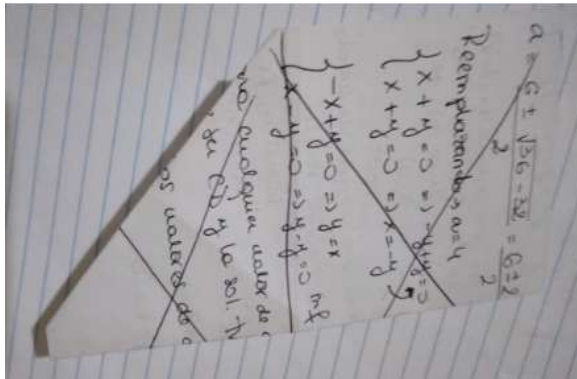 a = (6 ± √(36 - 32))/2 = (6 ± 2)/2
Reemplazando a=4
{ x + y = 0 => -y+y=0
x + y = 0 => x = -y
{ -x + y = 0 => y = x
x - y = 0 => y - y = 0 inf
cualquier valor de
y la sol.
valores de